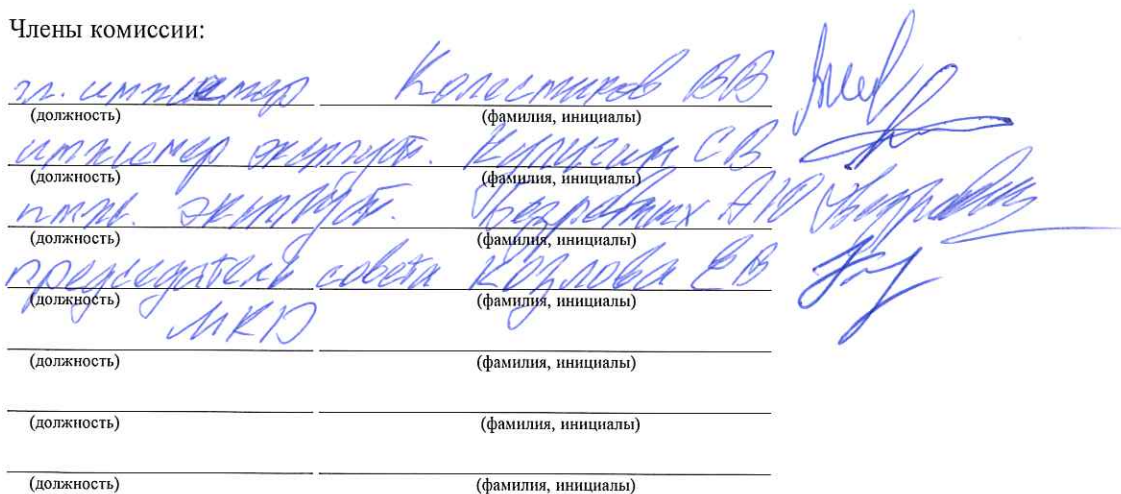 Члены комиссии:
гл. инженер Колесников ВВ
(должность) (фамилия, инициалы)
инженер эксплуат. СВ
(должность) (фамилия, инициалы)
инж. эксплуат. Безродных АЮ
(должность) (фамилия, инициалы)
председатель совета Козлова ЕВ
(должность) (фамилия, инициалы)
МКД
(должность) (фамилия, инициалы)
(должность) (фамилия, инициалы)
(должность) (фамилия, инициалы)